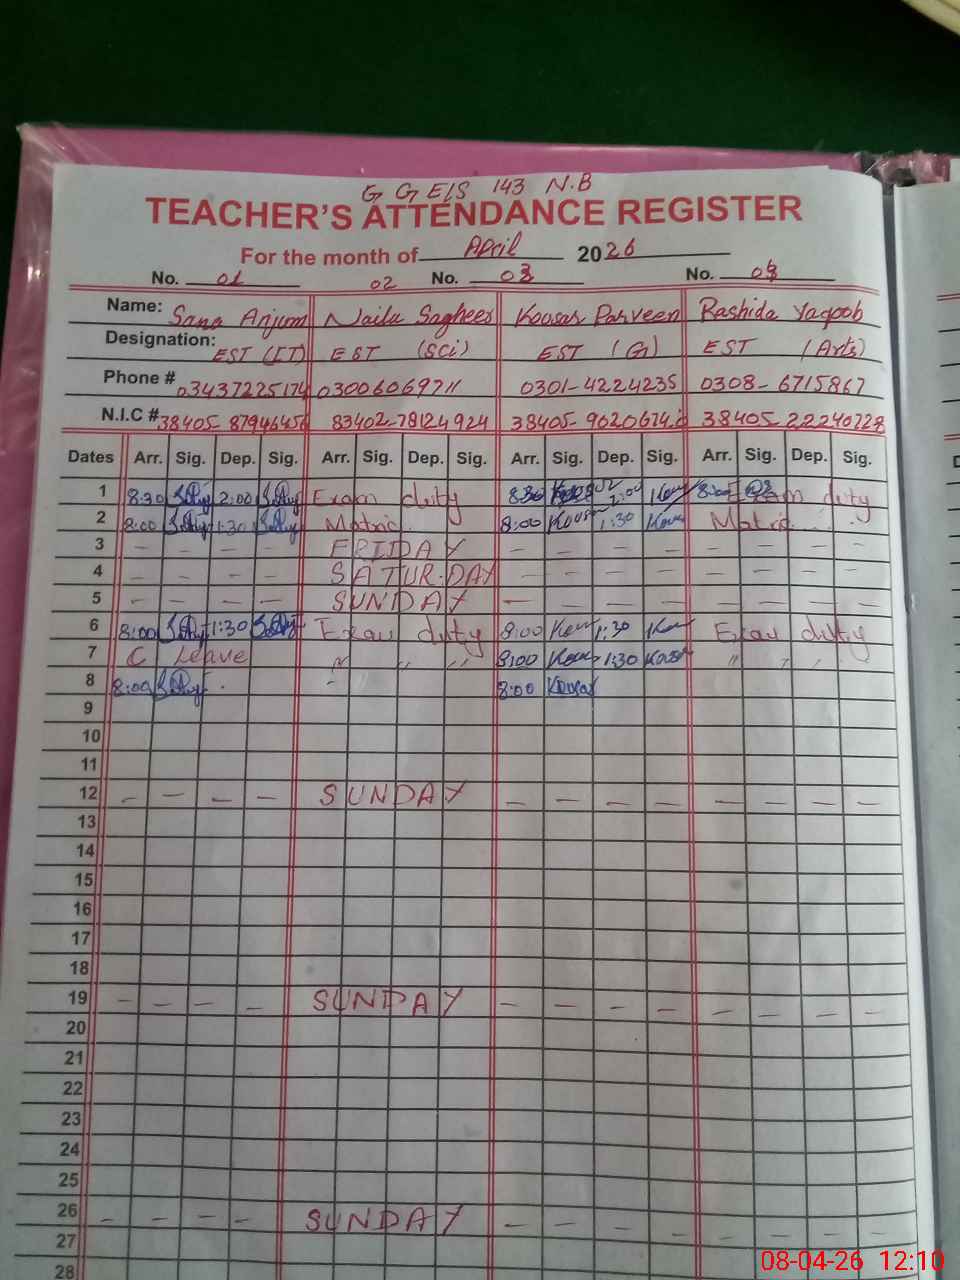 G G E/S 143 N.B
TEACHER'S ATTENDANCE REGISTER
For the month of April 2026
No. 01 02 No. 03 No. 04
Name: Sana Anjum Naila Sagheer Kousar Parveen Rashida Yaqoob
Designation: EST (IT) EST (SCi) EST (G) EST (Arts)
Phone # 03437225174 03006069711 0301-4224235 0308-6715867
N.I.C # 38405-87946456 83402-78124924 38405-9620674. 38405-22240728
Dates Arr. Sig. Dep. Sig. Arr. Sig. Dep. Sig. Arr. Sig. Dep. Sig. Arr. Sig. Dep. Sig.
1 8:30 2:00 Exam duty 8:30 2:00 8:00 Exam duty
2 8:00 1:30 Matric 8:00 Kousar 1:30 Kous Matric
3 - - - - FRIDAY - - - - - - - -
4 - - - - SATURDAY - - - - - - - -
5 - - - - SUNDAY - - - - - - - -
6 8:00 1:30 Exam duty 8:00 1:30 Exam duty
7 C Leave " " " 8:00 1:30 " " "
8 8:00 8:00 Kousar
9
10
11
12 - - - - SUNDAY - - - - - - - -
13
14
15
16
17
18
19 - - - - SUNDAY - - - - - - - -
20
21
22
23
24
25
26 - - - SUNDAY - - - - - - -
27
28
08-04-26 12:10